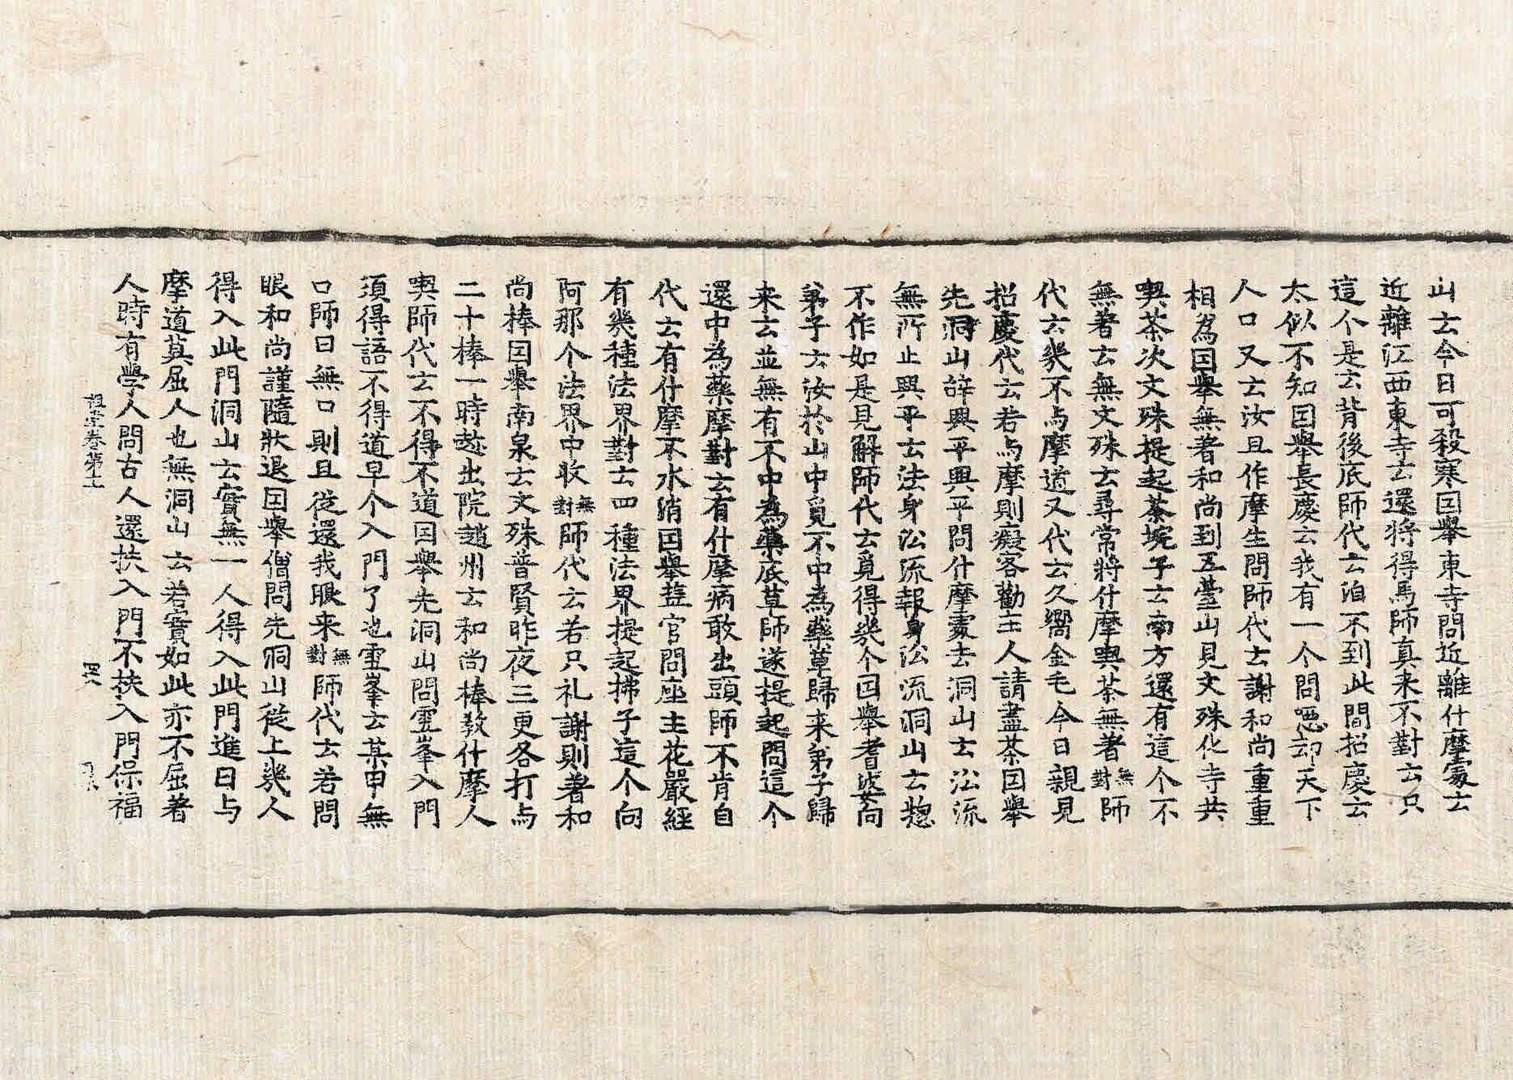 山云今日可殺寒因舉東寺問近離什摩處云
近離江西東寺云還將得馬師真来不對云只
這个是云背後底師代云洎不到此間招慶云
太似不知因舉長慶云我有一个問噁却天下
人口又云汝且作摩生問師代云謝和尚重重
相為因舉無著和尚到五臺山見文殊化寺共
喫茶次文殊提起茶垸子云南方還有這个不
無著云無文殊云尋常將什摩喫茶無著無對師
代云幾不与摩道又代云久嚮金毛今日親見
招慶代云若与摩則癡客勸主人請盡茶因舉
先洞山辞興平興平問什摩處去洞山云㳂流
無所止興平云法身㳂流報身㳂流洞山云揔
不作如是見解師代云覓得幾个因舉耆婆向
弟子云汝於山中覓不中為藥草歸来弟子歸
来云並無有不中為藥底草師遂提起問這个
還中為藥摩對云有什摩病敢出頭師不肯自
代云有什摩不水消因舉塩官問座主花嚴經
有幾種法界對云四種法界提起拂子這个向
阿那个法界中收無對師代云若只礼謝則著和
尚棒因舉南泉云文殊普賢昨夜三更各打与
二十棒一時趂出院趙州云和尚棒教什摩人
喫師代云不得不道因舉先洞山問雪峯入門
須得語不得道早个入門了也雪峯云某甲無
口師曰無口則且從還我眼来無對師代云若問
眼和尚謹隨狀退因舉僧問先洞山從上幾人
得入此門洞山云實無一人得入此門進曰与
摩道莫屈人也無洞山云若實如此亦不屈著
人時有學人問古人還扶入門不扶入門保福
祖堂卷第十一